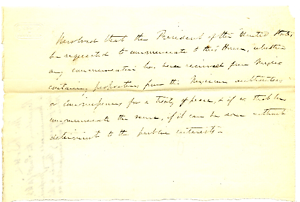 Resolved that the President of the United States
be requested to communicate to this House, whether
any communication has been received from Mexico
containing propositions from the Mexican authorities
or Commissioners for a treaty of peace, & if so that he
communicate the same, if it can be done without
detriment to the public interests